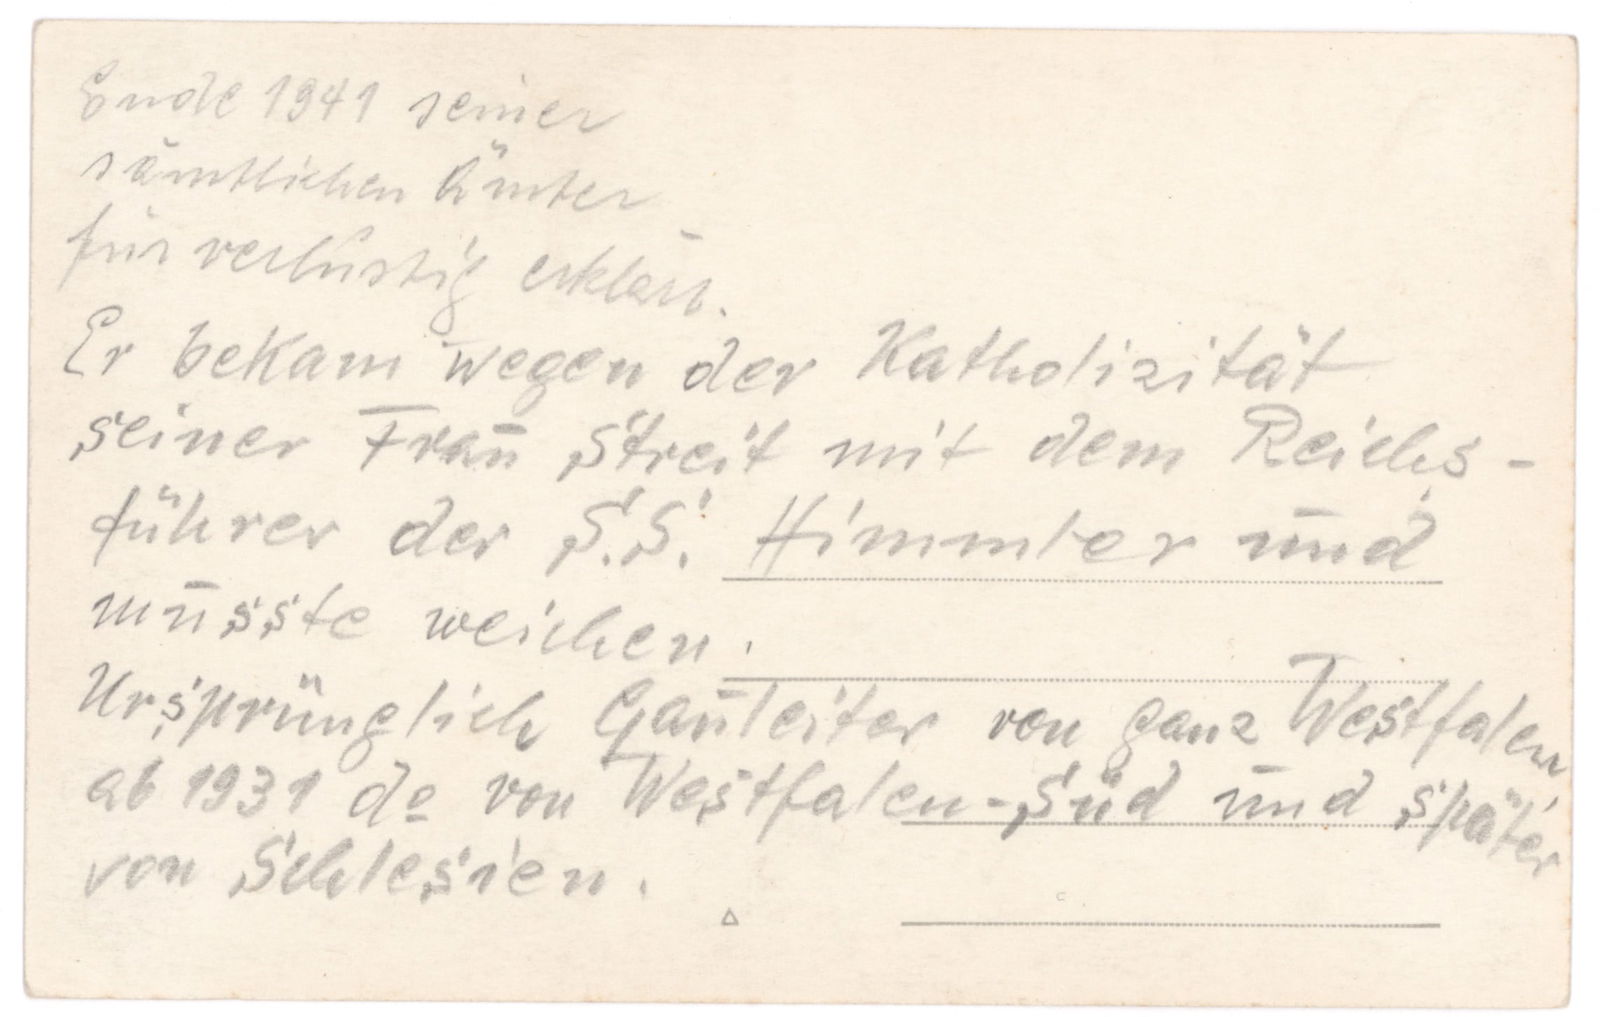 Ende 1941 seiner
sämtlichen Ämter
für verlustig erklärt.
Er bekam wegen der Katholizität
seiner Frau Streit mit dem Reichs-
führer der S.S. Himmler und
musste weichen.
Ursprünglich Gauleiter von ganz Westfalen
ab 1931 do von Westfalen-Süd und später
von Schlesien.